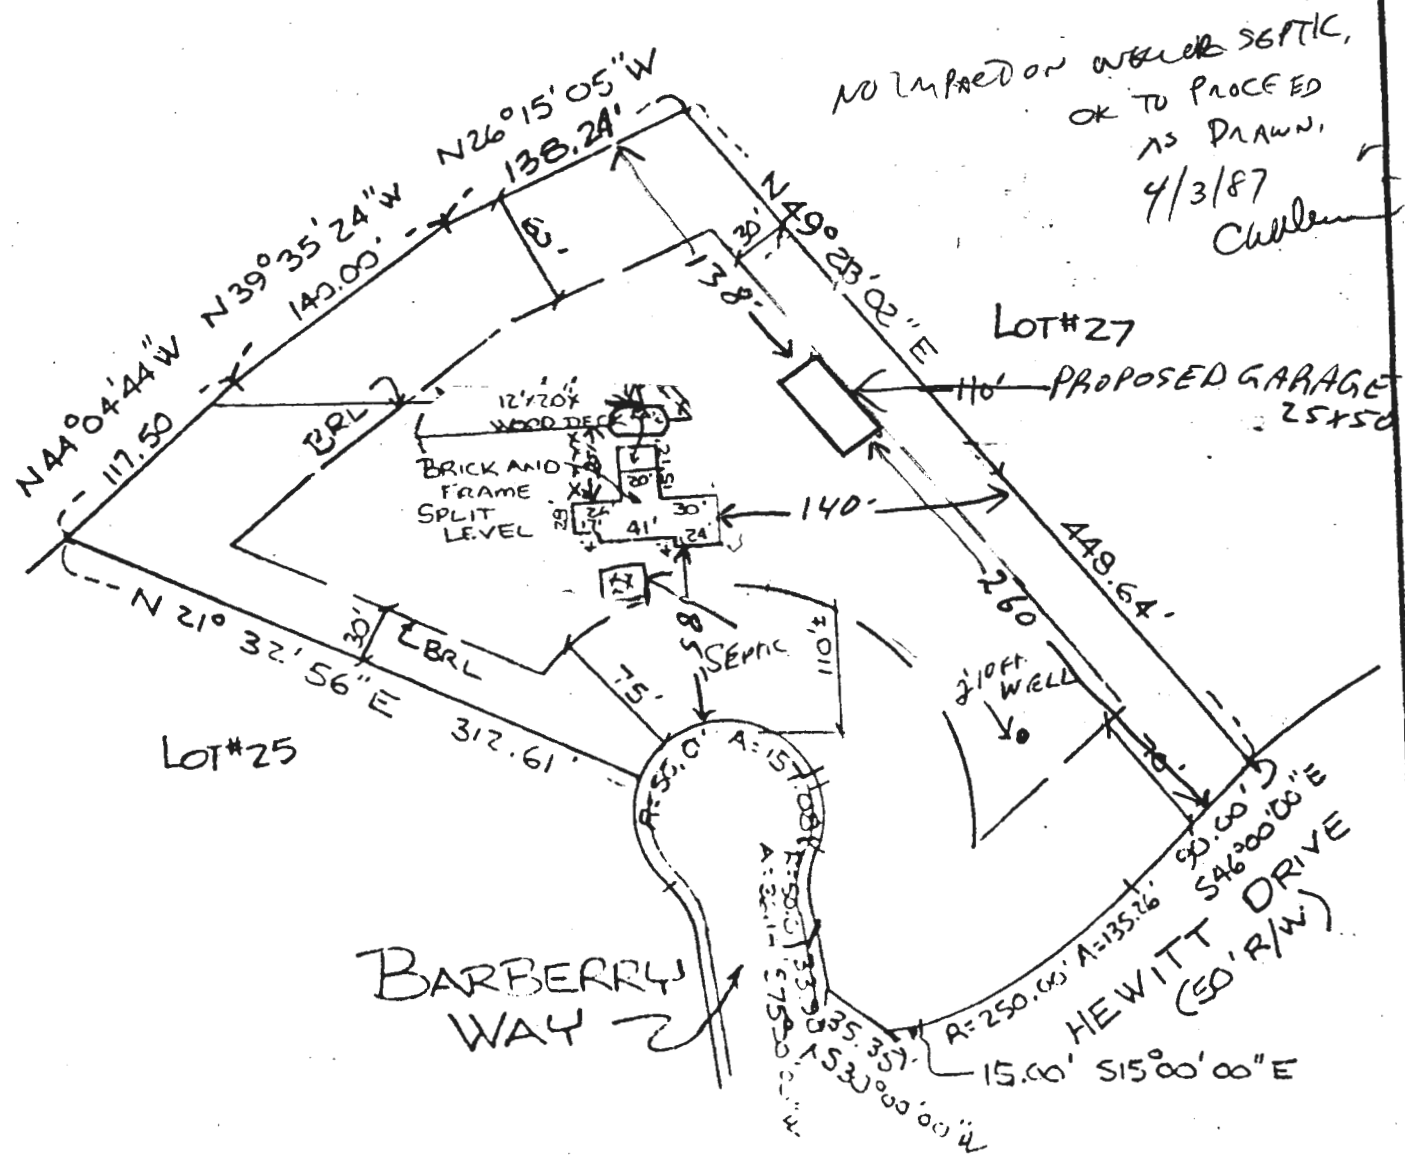 NO IMPACT ON WELL OR SEPTIC,
OK TO PROCEED
AS DRAWN.
4/3/87
N26°15'05"W
138.24'
N39°35'24"W
140.00'
N44°04'44"W
117.50
N49°23'02"E
30'
138'
LOT#27
110'
PROPOSED GARAGE
25x50
BRL
12'x20'
WOOD DECK
BRICK AND
FRAME
SPLIT
LEVEL
29'
41'
30'
24'
140'
448.64'
260
N 21° 32' 56" E
312.61'
30'
BRL
75'
85'
SEPTIC
10 FT.
WELL
LOT#25
R=50.0'
A=157.08'
BARBERRY
WAY
35.35'
S30°00'00"E
90.00'
S46°00'00"E
HEWITT DRIVE
(50' R/W)
R=250.00' A=135.26'
15.00' S15°00'00"E